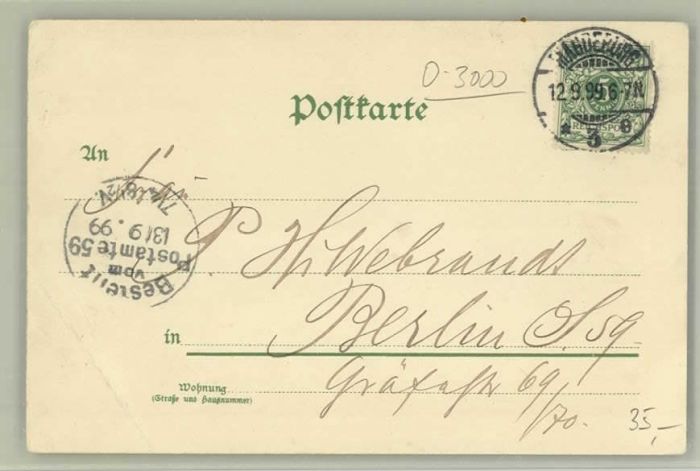 D-3000
MAGDEBURG
12.9.99.6-7N.
* 3 e
REICHSPOST
Postkarte
An
P. Hildebrandt
Bestellt
vom
Postamte 59
13/9.99
in Berlin S 59.
Wohnung
(Straße und Hausnummer)
Gräfestr 69
/70.
35,-